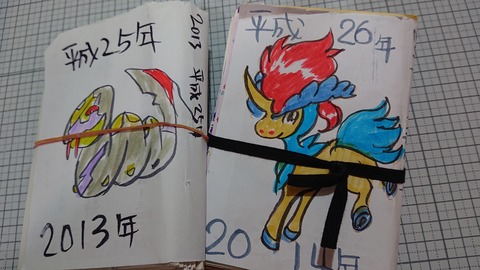 平成25年
2013年
2013 平成25年
平成 26年
2014年